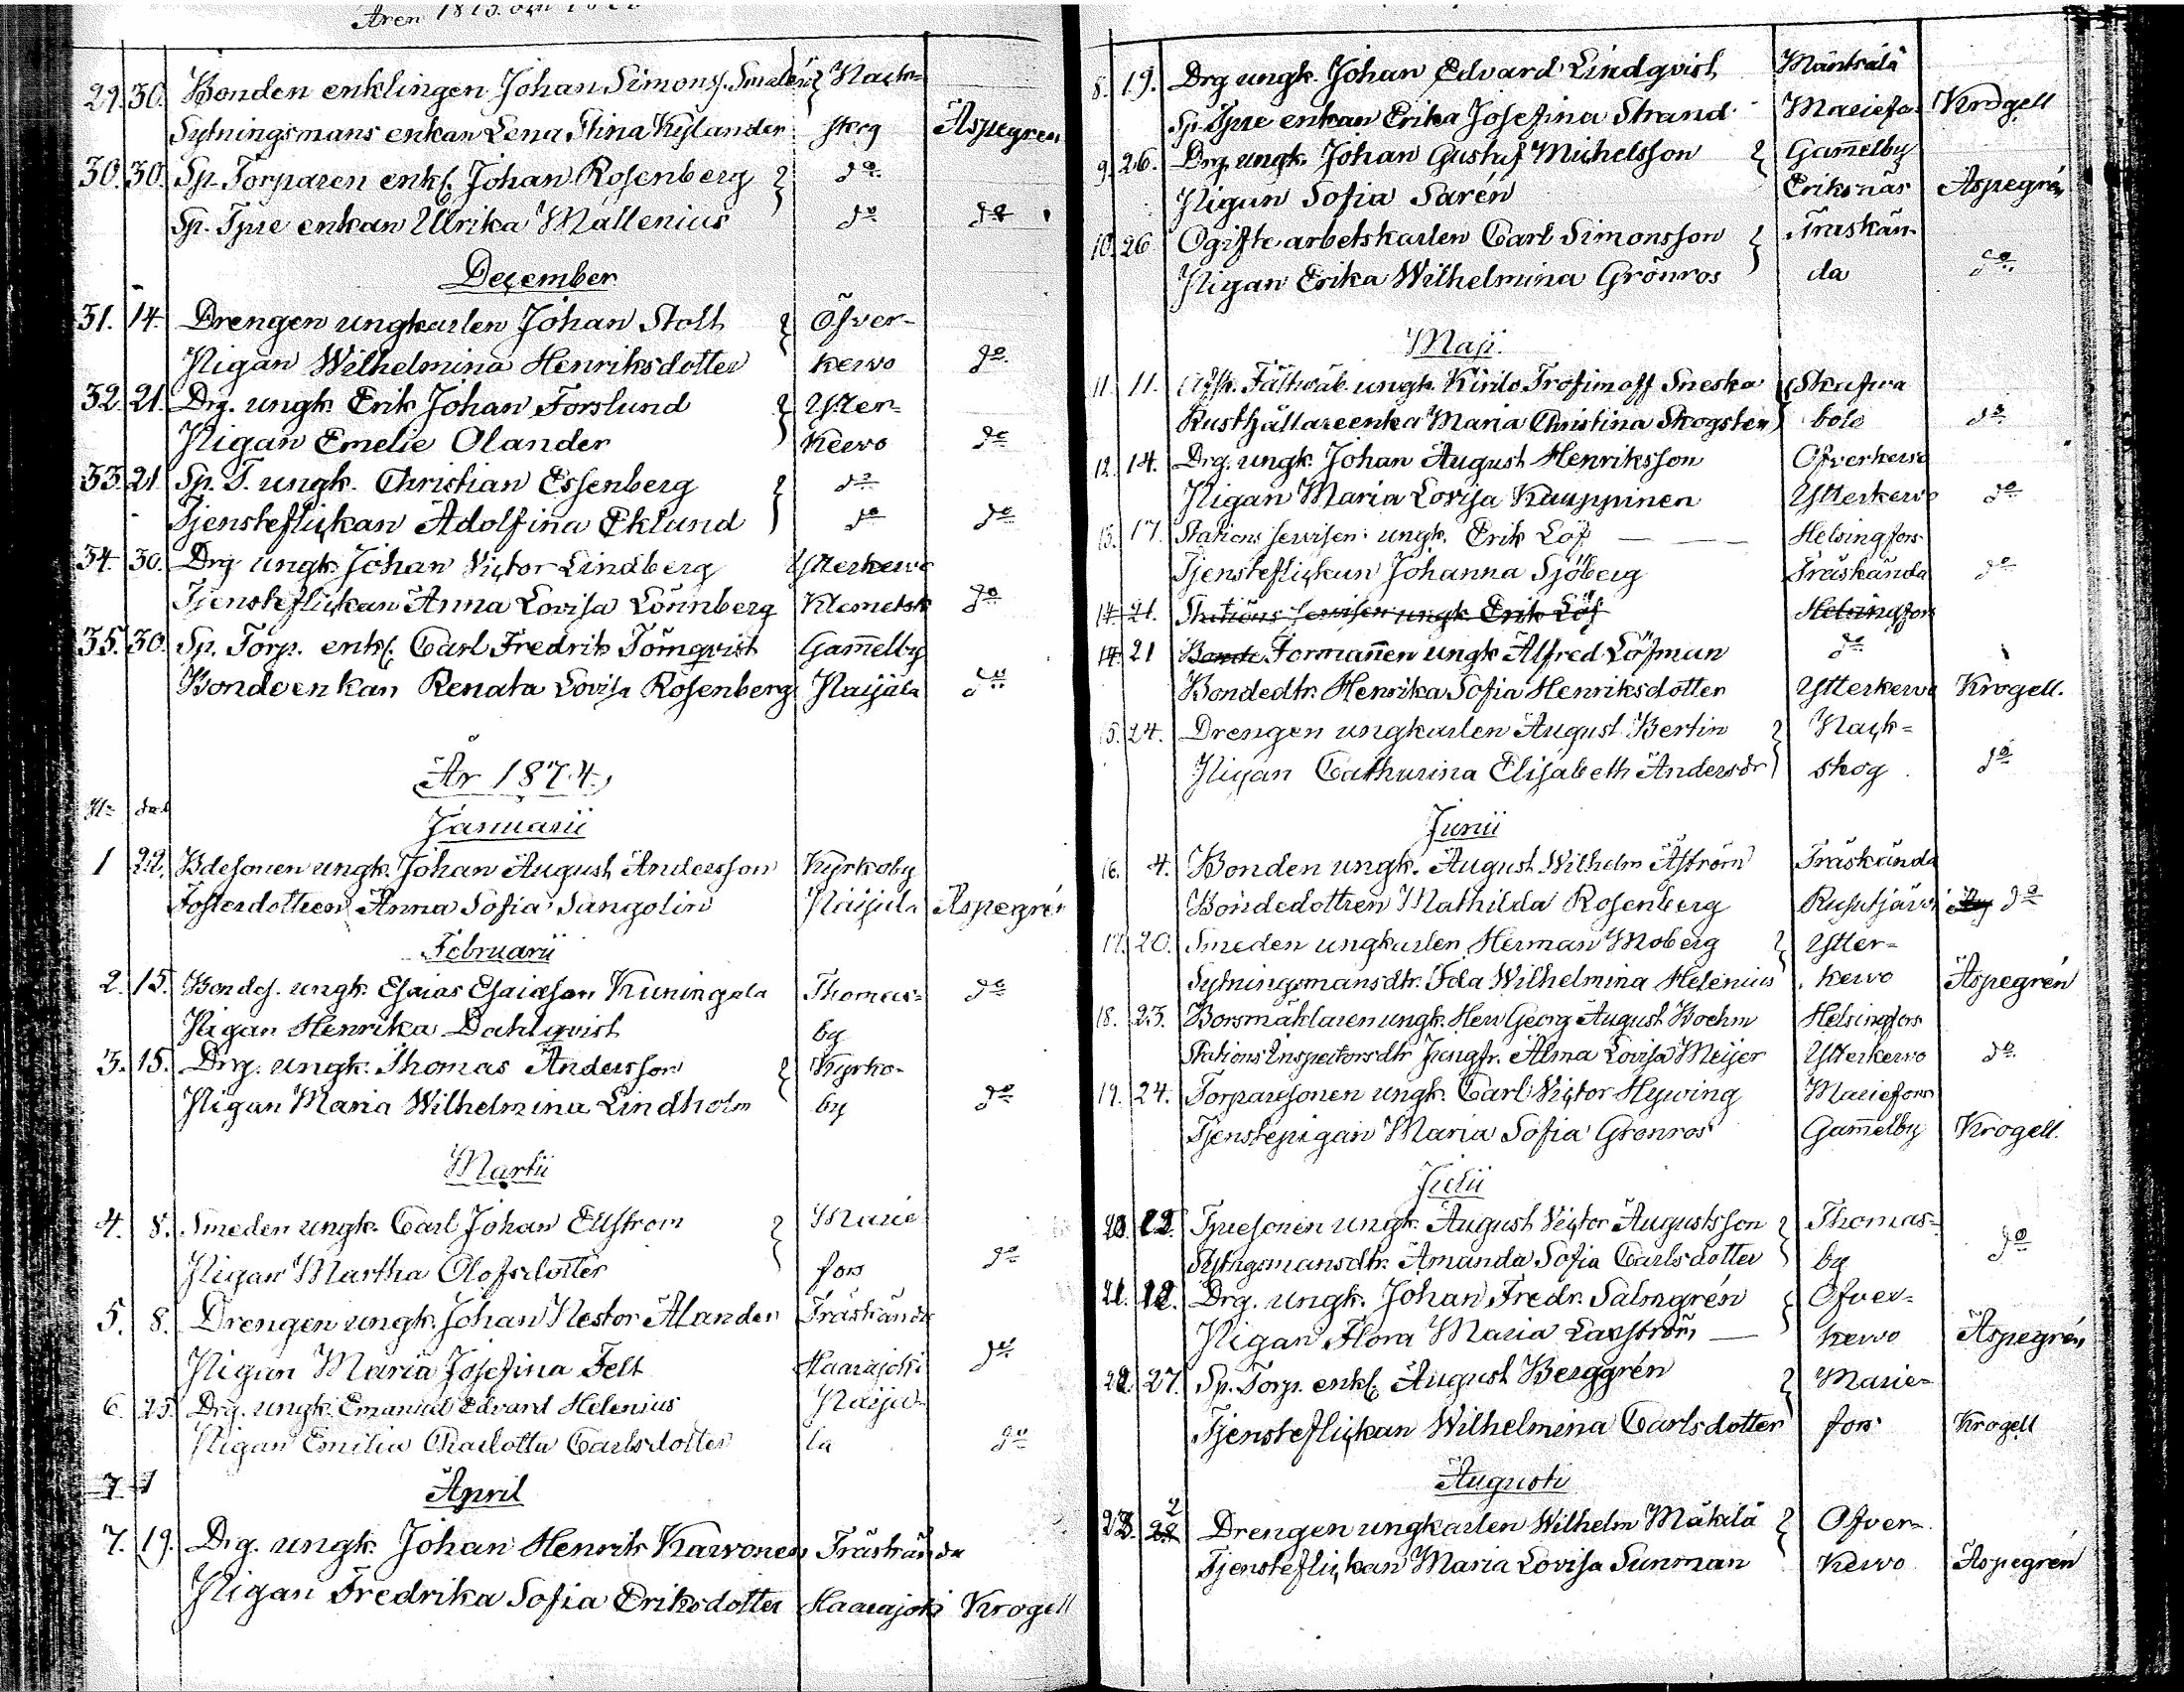 Åren 1873. och
29. 30. Bonden enklingen Johan Simonsf. Smalén Nack=
Sytningsmans enkan Lena Stina Kylander skog Aspegren
30. 30. Sp. Torparen enkl. Johan Rosenberg do
Sp. Tpre enkan Ulrika Mallenius do do
December
31. 14. Drengen ungkarlen Johan Stolt Öfver-
Pigan Wilhelmina Henriksdotter kervo do
32. 21. Drg. ungk. Erik Johan Forslund Ytter-
Pigan Emelie Olander Kervo do
33. 21 Sp. T. ungk. Christian Essenberg do
Tjensteflickan Adolfina Eklund do do
34. 30. Drg ungk. Johan Victor Lindberg Ytterkervo
Tjensteflickan Anna Lovisa Lönnberg Klemetsk do
35. 30. Sp. Torp. enkl. Carl Fredrik Törnqvist Gam̄elby
Bondeenkan Renata Lovisa Rosenberg Paijala do
År 1874.
No dat
Januarii
1 22. Bdesonen ungk. Johan August Andersson Kyrkoby
Fosterdottren Anna Sofia Sangolin Paijala Aspegrén
Februarii
2. 15. Bondes. ungk. Esaias Esaiasson Kuningala Thomas=
Pigan Henrika Dahlqvist by do
3. 15. Drg. ungk. Thomas Andersson Kyrko-
Pigan Maria Wilhelmina Lindholm by do
Martii
4. 8. Smeden ungk. Carl Johan Ellström Marie
Pigan Martha Olofsdotter fors do
5. 8. Drengen ungk. Johan Nestor Alander Träskända
Pigan Maria Josefina Felt Haarajoki do
6. 25. Drg. ungk. Emanuel Edvard Helenius Paija
Pigan Emilia Charlotta Carlsdotter la do
7
April
7. 19. Drg. ungk. Johan Henrik Karvonen Träskända
Pigan Fredrika Sofia Eriksdotter Haarajoki Krogell
8. 19. Drg ungk. Johan Edvard Lindqvist Mäntsälä
Sp. Tpre enkan Erika Josefina Strand Mariefo. Krogell
9. 26. Drg. ungk. Johan Gustaf Michelsson Gam̄elby
Pigan Sofia Sarén Eriksnäs Aspegrén
10. 26. Ogifte arbetskarlen Carl Simonsson Träskän-
Pigan Erika Wilhelmina Grönros da do
Maji.
11. 11. Afsk. Fältväb. ungk. Kirilo Trofimoff Sneska Skafva
Rusthållareenka Maria Christina Skogster böle do
12. 14. Drg. ungk. Johan August Henriksson Öfverkervo
Pigan Maria Lovisa Kauppinen Ytterkervo do
13. 17. Stationsservisen ungk. Erik Löf Helsingfors
Tjensteflickan Johanna Sjöberg Träskända do
14. 21. Stationsservisen ungk. Erik Löf Helsingfors
14. 21 Bonde Formannen ungk Alfred Löfman do
Bondedtr. Henrika Sofia Henriksdotter Ytterkervo Krogell.
15. 24. Drengen ungkarlen August Bertin Nack=
Pigan Catharina Elisabeth Andersdr skog do
Junii
16. 4. Bonden ungk. August Wilhelm Åström Träskända
Bondedottren Mathilda Rosenberg Rusutjärvi do
17. 20. Smeden ungkarlen Herman Moberg Ytter=
Sytningsmansdtr. Ida Wilhelmina Helenius kervo Aspegrén
18. 23. Börsmäklaren ungk. Herr Georg August Boehm Helsingfors
Stations Inspectorsdtr Jungfr. Alma Lovisa Meijer Ytterkervo do
19. 24. Torparesonen ungk. Carl Victor Hywing Mariefors
Tjenstepigan Maria Sofia Grönros Gam̄elby Krogell.
Julii
20. 12. Tpresonen ungk. August Victor Augustsson Thomas=
Sytngsmansdtr. Amanda Sofia Carlsdotter by do
21. 12. Drg. ungk. Johan Fredr. Salmgrén Öfver-
Pigan Flora Maria Laxström kervo Aspegrén
22. 27. Sp. Torp. enkl. August Berggrén Marie-
Tjensteflickan Wilhelmina Carlsdotter fors Krogell
Augusti
23. 2 Drengen ungkarlen Wilhelm Mäkilä Öfver-
Tjensteflickan Maria Lovisa Sunman Kervo Aspegrén